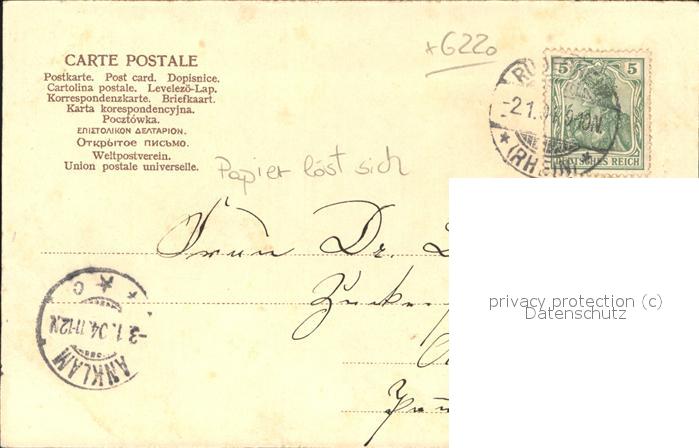 *6220
CARTE POSTALE
Postkarte. Post card. Dopisnice.
Cartolina postale. Levelezö-Lap.
Korrespondenzkarte. Briefkaart.
Karta korespondencyjna.
Pocztówka.
ΕΠΙΣΤΟΛΙΚΟΝ ΔΕΛΤΑΡΙΟΝ.
Открытое письмо.
Weltpostverein.
Union postale universelle.
5 5
DEUTSCHES REICH
(RHEIN)
Papier löst sich
Frau Dr.
Zucker
privacy protection (c)
Datenschutz
-3.1.04.11-12N.
ANKLAM